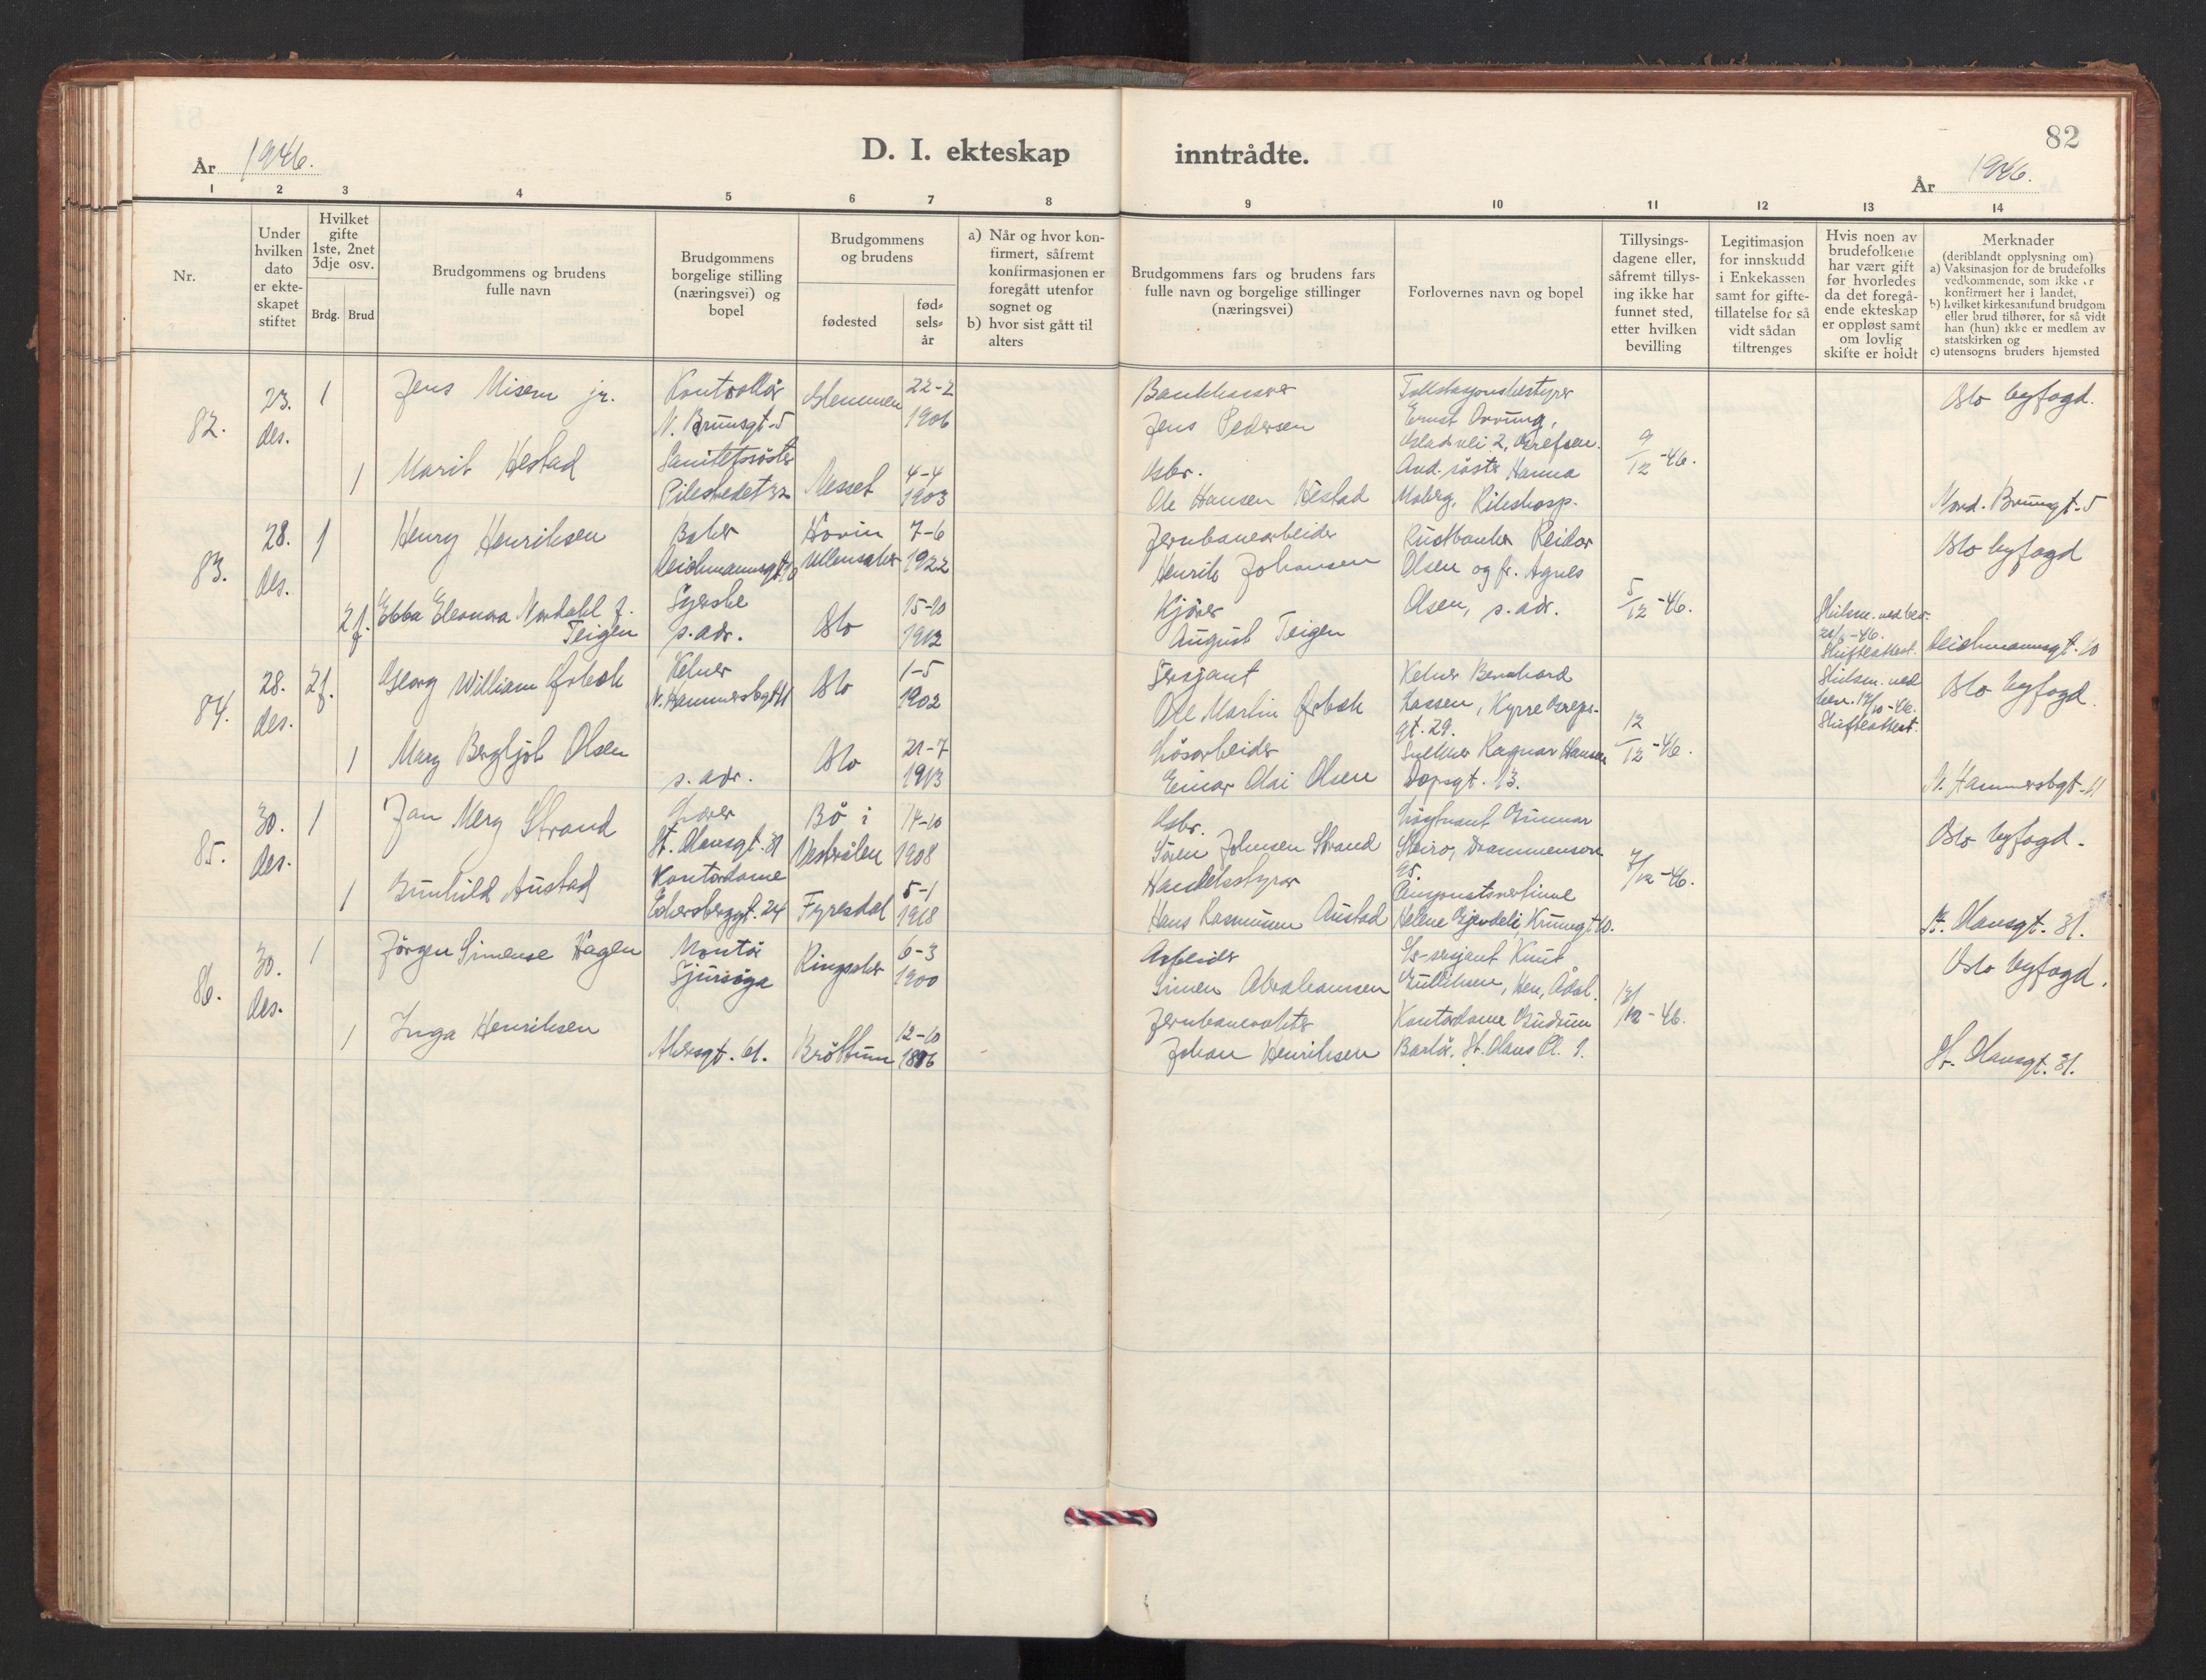 82
År 1946.
D. I. ekteskap inntrådte.
År 1946.
1 2 3 4 5 6 7 8 9 10 11 12 13 14
Nr.
Under
hvilken
dato
er ekte-
skapet
stiftet
Hvilket
gifte
1ste, 2net
3dje osv.
Brdg. Brud
Brudgommens og brudens
fulle navn
Brudgommens
borgelige stilling
(næringsvei) og
bopel
Brudgommens
og brudens
fødested
fød-
sels-
år
a) Når og hvor kon-
firmert, såfremt
konfirmasjonen er
foregått utenfor
sognet og
b) hvor sist gått til
alters
Brudgommens fars og brudens fars
fulle navn og borgelige stillinger
(næringsvei)
Forlovernes navn og bopel
Tillysings-
dagene eller,
såfremt tillys-
ing ikke har
funnet sted,
etter hvilken
bevilling
Legitimasjon
for innskudd
i Enkekassen
samt for gifte-
tillatelse for så
vidt sådan
tiltrenges
Hvis noen av
brudefolkene
har vært gift
før hvorledes
da det foregå-
ende ekteskap
er oppløst samt
om lovlig
skifte er holdt
Merknader
(deriblandt opplysning om)
a) Vaksinasjon for de brudefolks
vedkommende, som ikke er
konfirmert her i landet,
b) hvilket kirkesamfund brudgom
eller brud tilhører, for så vidt
han (hun) ikke er medlem av
statskirken og
c) utensogns bruders hjemsted
82.
23.
des.
1
Jens Misem jr.
Kontrollør
N. Brunsgt. 5
Glemmen
22-2
1906
Jens Pedersen
Tollstasjonsbestyrer
Ernst
2, Grefsen.
9/12-46.
Oslo byfogd.
1
Marit Hestad
Sanitetssøster
Pilestredet 32
Nesset
4-4
1903
Gbr.
Ole Hansen Hestad
And. søster Hanna
Moberg, Rikshosp.
Nord. Brungt. 5
83.
28.
des.
1
Henry Henriksen
Baker
Deichmannsgt. 10
Hovin
Ullensaker
7-6
1922
Jernbanearbeider
Henrik Johansen
Reidar
Olsen og fr. Agnes
Olsen, s. adr.
5/12-46.
Oslo byfogd
2 f.
Ebba Eleonora Nordahl f.
Teigen
Syerske
s. adr.
Oslo
15-10
1912
Kjører
August Teigen
Skilsm. ved bev.
-46.
Skifteattest.
Deichmannsgt. 10
84.
28.
des.
2 f.
Georg William Ørbek
Kelner
N. Hammersbgt 11
Oslo
1-5
1902
Sersjant
Ole Martin Ørbek
Kelner Bernhard
Lassen, Kyrre Greps-
gt. 29.
12/12-46.
Skilsm. ved
bev. 14/10-46.
Skifteattest.
Oslo byfogd.
1
Mary Bergljot Olsen
s. adr.
Oslo
21-7
1913
Løsarbeider
Einar Olai Olsen
Snekker Ragnar Hansen
Dopsgt. 13.
N. Hammersbgt. 11
85.
30.
des.
1
Jan Merg Strand
Lærer
St. Olavsgt. 31
Bø i
Vesterålen
14-10
1908
Gbr.
Søren Johnsen Strand
Løytnant Gunnar
Steiro, Drammensvn
95.
7/12-46.
Oslo byfogd.
1
Gunhild Austad
Kontordame
Eckersberggt. 24
Fyresdal
5-1
1918
Handelsstyrer
Hans Rasmussen Austad
Pensjonatsvertinne
Helene Gjendeli, Krumgt 10.
St. Olavsgt. 31.
86.
30.
des.
1
Jørgen Simense Hagen
Montør
Sjursøya
Ringsaker
6-3
1900
Arbeider
Simen Abrahamsen
Ls-sersjant Knut
Gulliksen, Hen, Ådal.
13/12-46.
Oslo byfogd.
1
Inga Henriksen
Akersgt. 61.
Brøttum
12-10
1896
Jernbanevokter
Johan Henriksen
Kontordame Gudrun
St. Olavs Pl. 1.
St. Olavsgt. 31.